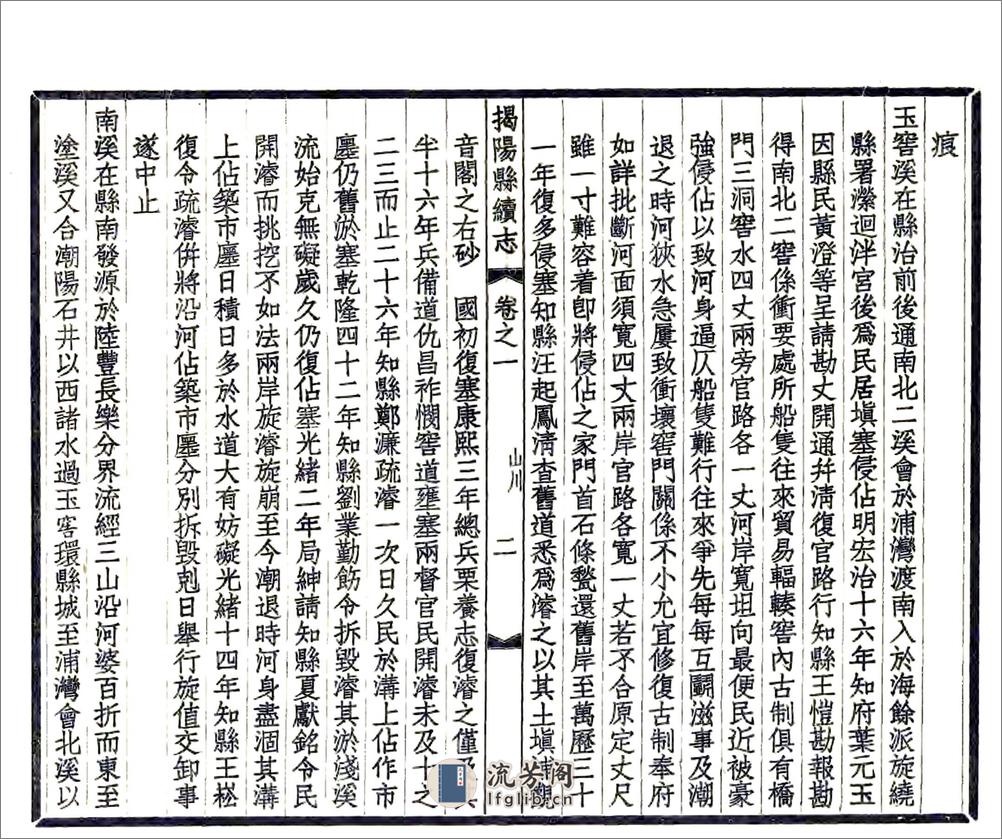 痕
玉窖溪在縣治前後通南北二溪會於浦灣渡南入於海餘派旋繞
縣署瀠迴泮宮後爲民居塡塞侵佔明宏治十六年知府葉元玉
因縣民黃澄等呈請勘丈開通幷淸復官路行知縣王愷勘報勘
得南北二窖係衝要處所船隻往來貿易輻輳窖內古制俱有橋
門三洞窖水四丈兩旁官路各一丈河岸寬坦向最便民近被豪
強侵佔以致河身逼仄船隻難行往來爭先每每互鬭滋事及潮
退之時河狹水急屢致衝壞窖門關係不小允宜修復古制奉府
如詳批斷河面須寬四丈兩岸官路各寬一丈若不合原定丈尺
雖一寸難容着卽將侵佔之家門首石條甃還舊岸至萬歷三十
一年復多侵塞知縣汪起鳳淸查舊道悉爲濬之以其土塡
揭陽縣續志 卷之一 山川 二
音閣之右砂 國初復塞康熙三年總兵栗養志復濬之僅
半十六年兵備道仇昌祚憫窖道壅塞兩督官民開濬未及十之
二三而止二十六年知縣鄭濂疏濬一次日久民於溝上佔作市
廛仍舊淤塞乾隆四十二年知縣劉業勤飭令拆毀濬其淤淺溪
流始克無礙歲久仍復佔塞光緒二年局紳請知縣夏獻銘令民
開濬而挑挖不如法兩岸旋濬旋崩至今潮退時河身盡涸其溝
上佔築市廛日積日多於水道大有妨礙光緒十四年知縣王崧
復令疏濬倂將沿河佔築市廛分別拆毀剋日舉行旋值交卸事
遂中止
南溪在縣南發源於陸豐長樂分界流經三山沿河婆百折而東至
塗溪又合潮陽石井以西諸水過玉窖環縣城至浦灣會北溪以
流芳阁
lfglib.com